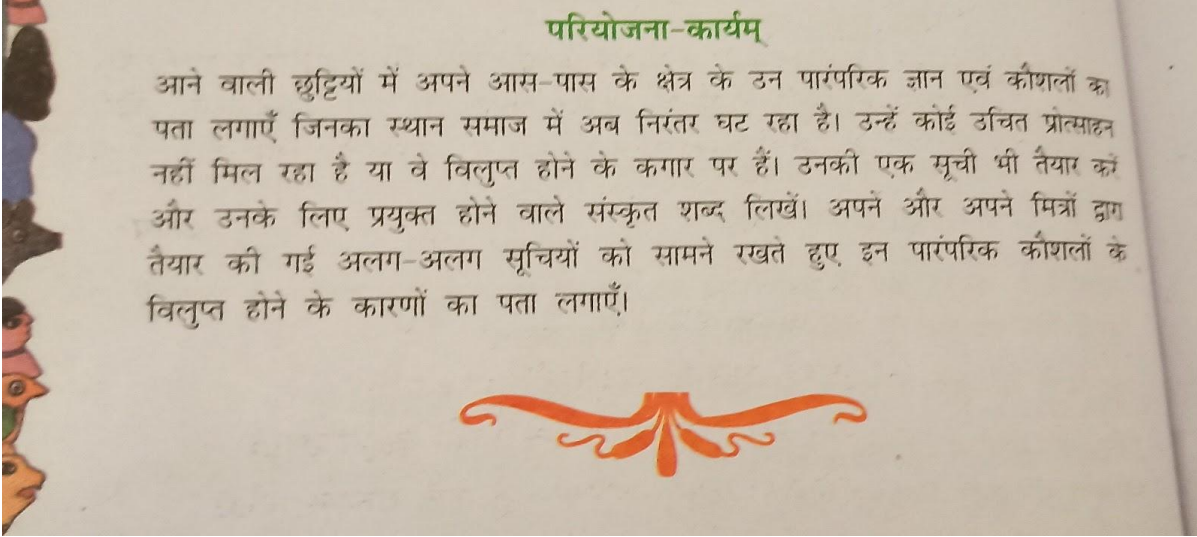 परियोजना-कार्यम्
आने वाली छुट्टियों में अपने आस-पास के क्षेत्र के उन पारंपरिक ज्ञान एवं कौशलों का
पता लगाएँ जिनका स्थान समाज में अब निरंतर घट रहा है। उन्हें कोई उचित प्रोत्साहन
नहीं मिल रहा है या वे विलुप्त होने के कगार पर हैं। उनकी एक सूची भी तैयार करें
और उनके लिए प्रयुक्त होने वाले संस्कृत शब्द लिखें। अपने और अपने मित्रों द्वारा
तैयार की गई अलग-अलग सूचियों को सामने रखते हुए इन पारंपरिक कौशलों के
विलुप्त होने के कारणों का पता लगाएँ।